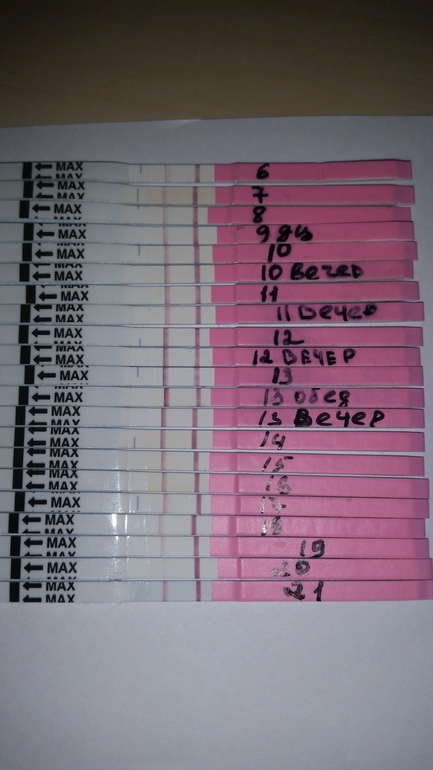 MAX 6
MAX 7
MAX 8
MAX 9
MAX 10
MAX 10 Вечер
MAX 11
MAX 11 Вечер
MAX 12
MAX 12 ВЕЧЕР
MAX 13
MAX 13 обед
MAX 13 Вечер
MAX 14
MAX 15
MAX 16
MAX 17
MAX 18
MAX 19
MAX 20
MAX 21